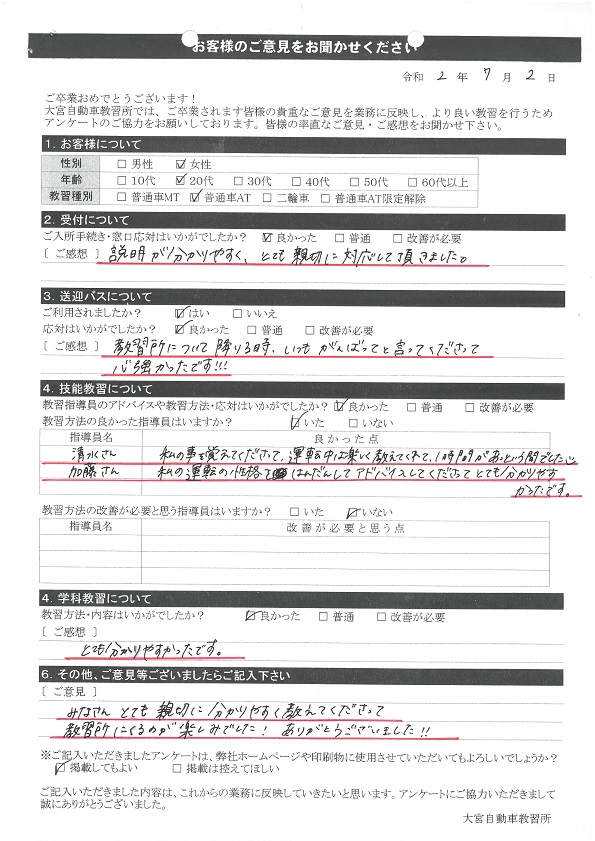 お客様のご意見をお聞かせください
令和 2 年 7 月 2 日
ご卒業おめでとうございます！
大宮自動車教習所では、ご卒業されます皆様の貴重なご意見を業務に反映し、より良い教習を行うため
アンケートのご協力をお願いしております。皆様の率直なご意見・ご感想をお聞かせ下さい。
1. お客様について
性別 □ 男性 ☑ 女性
年齢 □ 10代 ☑ 20代 □ 30代 □ 40代 □ 50代 □ 60代以上
教習種別 □ 普通車MT ☑ 普通車AT □ 二輪車 □ 普通車AT限定解除
2. 受付について
ご入所手続き・窓口応対はいかがでしたか？ ☑ 良かった □ 普通 □ 改善が必要
[ ご感想 ] 説明が分かりやすく、とても親切に対応して頂きました。
3. 送迎バスについて
ご利用されましたか？ ☑ はい □ いいえ
応対はいかがでしたか？ ☑ 良かった □ 普通 □ 改善が必要
[ ご感想 ] 教習所について降りる時、いつもがんばってと言ってくださって
心強かったです!!!
4. 技能教習について
教習指導員のアドバイスや教習方法・応対はいかがでしたか？ ☑ 良かった □ 普通 □ 改善が必要
教習方法の良かった指導員はいますか？ ☑ いた □ いない
指導員名 良かった点
清水さん 私の事を覚えてくださって、運転中は楽しく教えてくれて、1時間があっという間でした
加藤さん 私の運転の性格をはんだんしてアドバイスしてくださってとても分かりやす
かったです。
教習方法の改善が必要と思う指導員はいますか？ □ いた ☑ いない
指導員名 改善が必要と思う点
4. 学科教習について
教習方法・内容はいかがでしたか？ ☑ 良かった □ 普通 □ 改善が必要
[ ご感想 ]
とても分かりやすかったです。
6. その他、ご意見等ございましたらご記入下さい
[ ご意見 ]
みなさん とても親切に分かりやすく教えてくださって
教習所にくるのが楽しみでした！ ありがとうございました!!
※ご記入いただきましたアンケートは、弊社ホームページや印刷物に使用させていただいてもよろしいでしょうか？
☑ 掲載してもよい □ 掲載は控えてほしい
ご記入いただきました内容は、これからの業務に反映していきたいと思います。アンケートにご協力いただきまして
誠にありがとうございました。
大宮自動車教習所